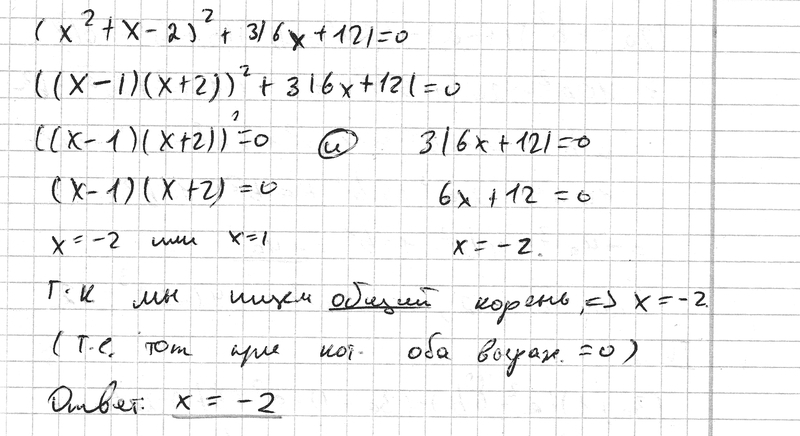 (x²+x-2)²+3|6x+12|=0
((x-1)(x+2))²+3|6x+12|=0
((x-1)(x+2))²=0 и 3|6x+12|=0
(x-1)(x+2)=0 6x+12=0
x=-2 или x=1 x=-2.
Т.к мы ищем общий корень, => x=-2.
(т.е. тот при кот. оба выраж. =0)
Ответ: x=-2